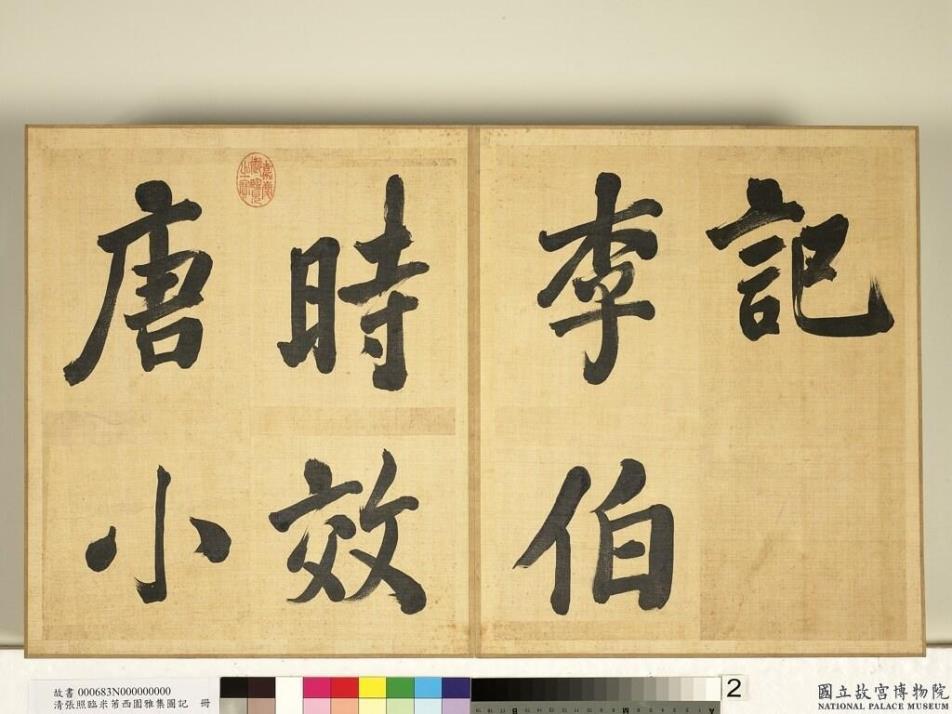 記
李伯
時效
唐小
故書 000683N000000000
清張照臨米芾西園雅集圖記 冊
2
國立故宮博物院
NATIONAL PALACE MUSEUM